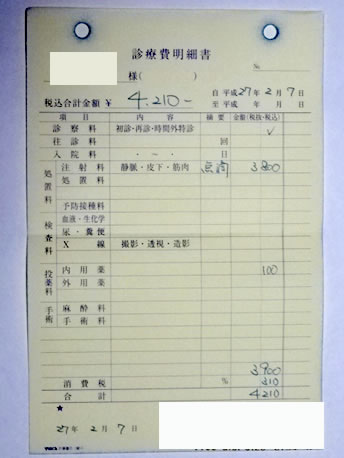 診療費明細書
様( ) №
税込合計金額 ¥ 4.210- 自 平成27年2月7日
至 平成 年 月 日
項目 内容 摘要 金額(税抜・税込)
診察料 初診・再診・時間外特診 ✓
往診料 回
入院料 ・ ～ ・ 日
処置料 注射料 静脈・皮下・筋肉 点滴 3800
処置料
予防接種料
検査料 血液・生化学
尿・糞便
X線 撮影・透視・造影
投薬料 内用薬 100
外用薬
手術 麻酔料
手術料
3900
消費税 % 310
合計 4210
★
27年2月7日